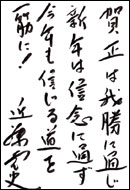 賀正は我勝に通じ
新年は信念に通ず
今年も信じる道を
一筋に！
近藤